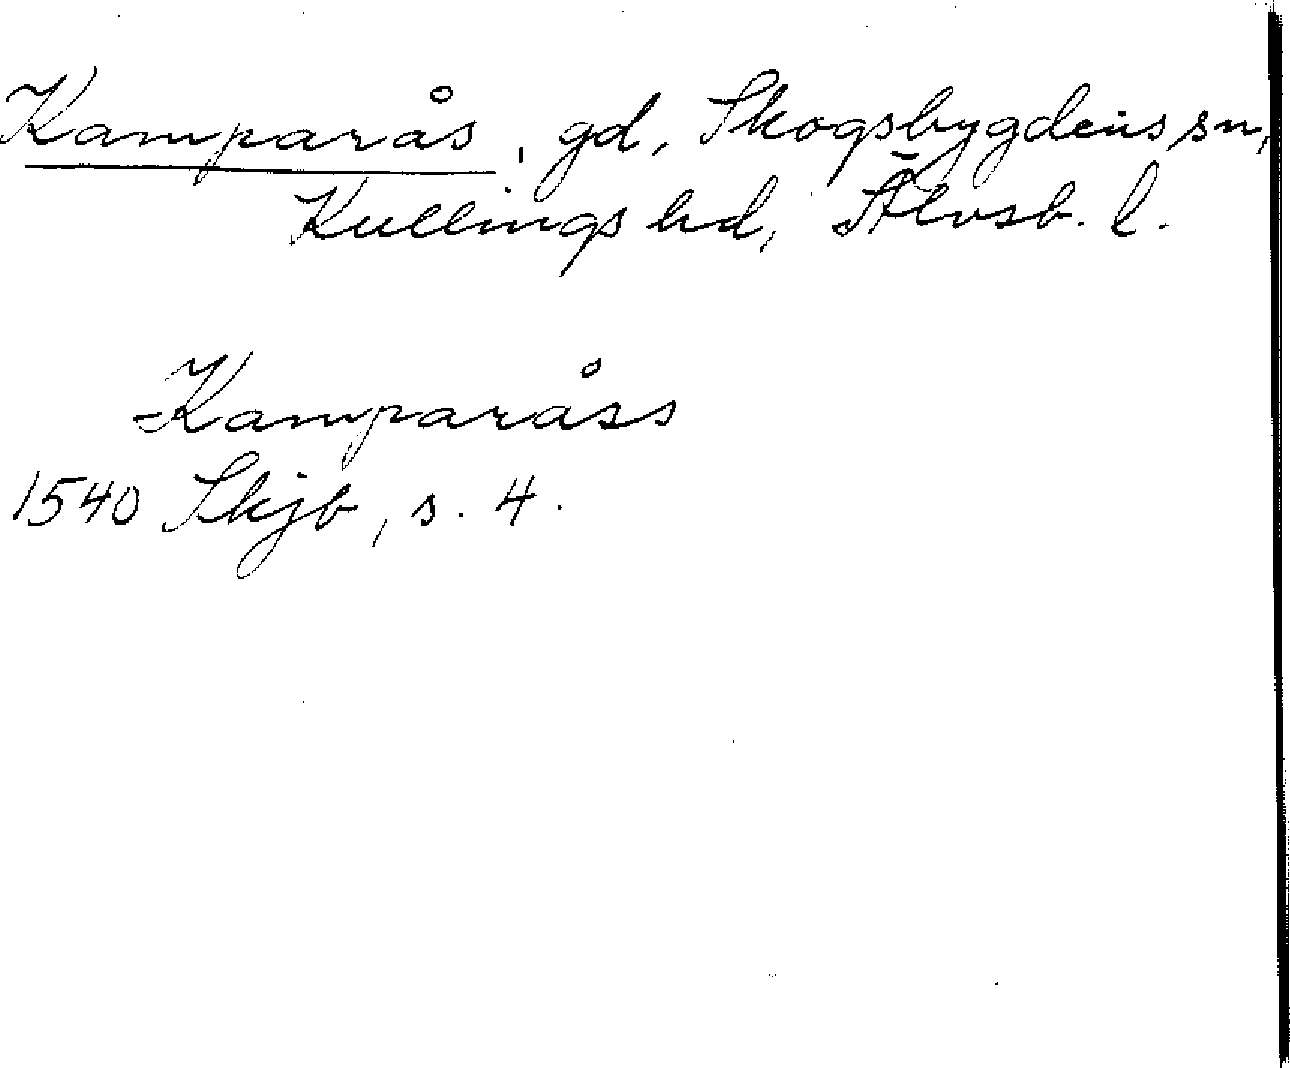 Kamparås, gd, Skogsbygdens sn,
Kullings hd, Älvsb. l.
Kamparåss
1540 Skjb, s. 4.